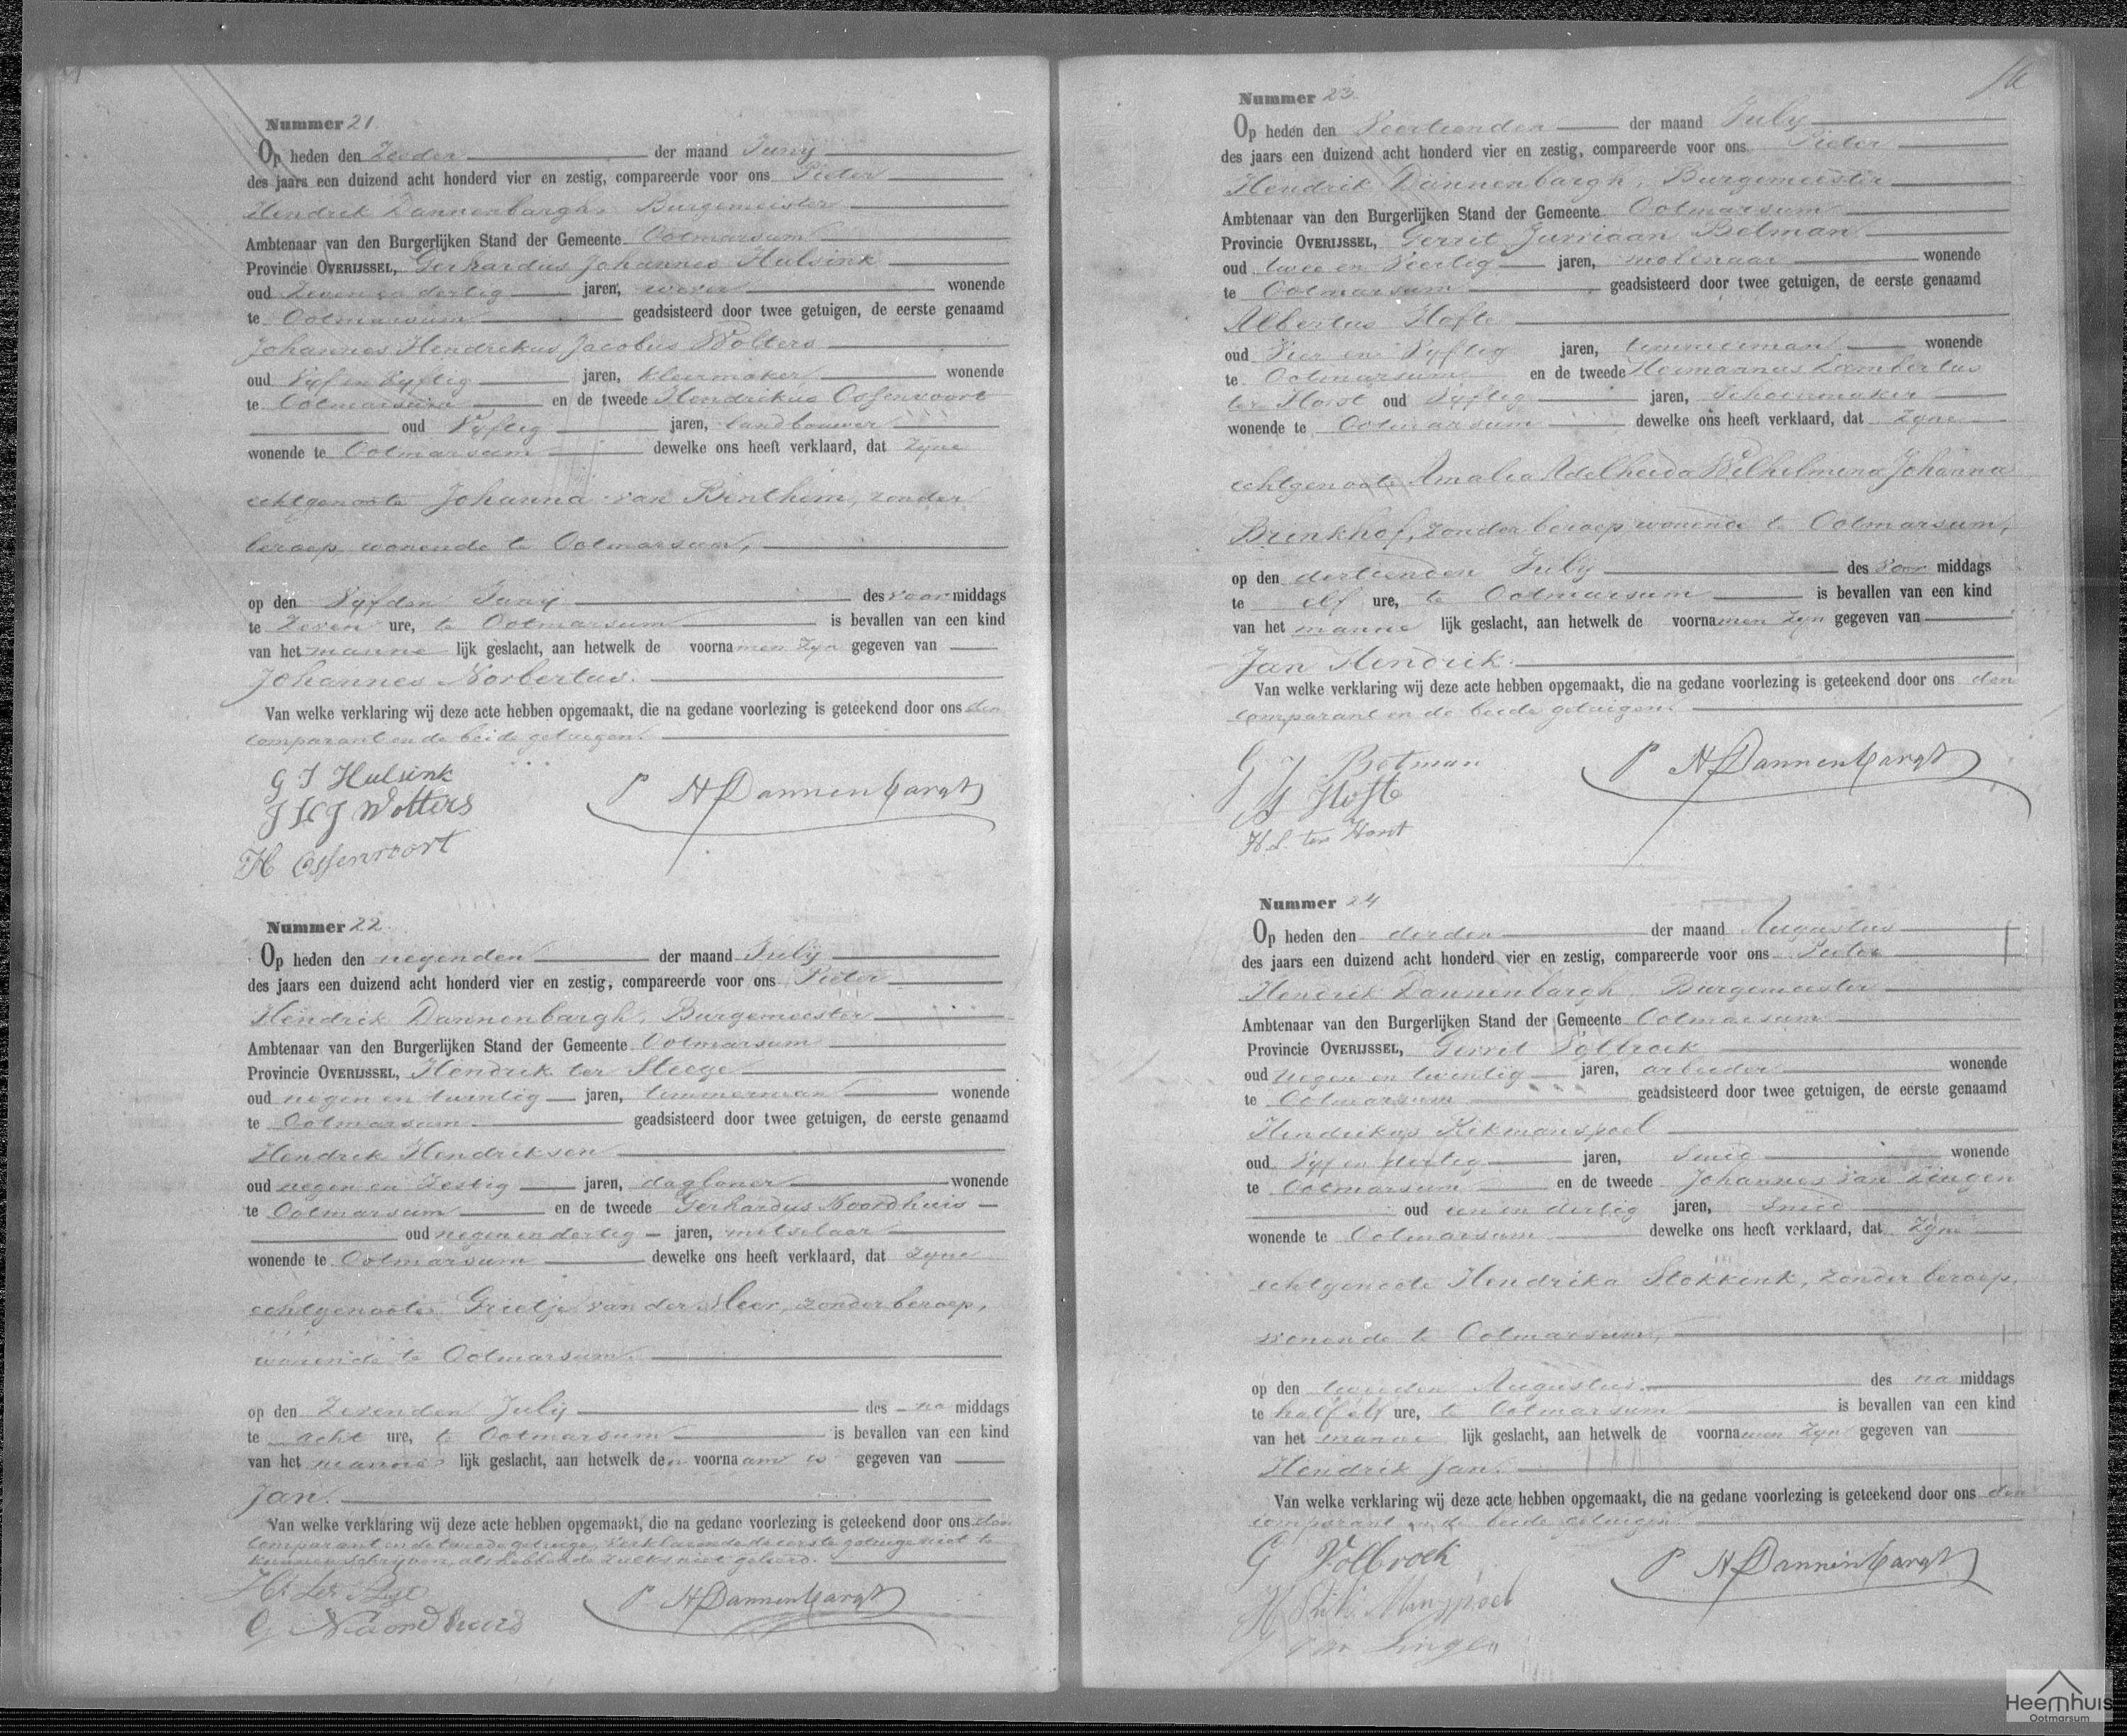 Nummer 21.
Op heden den Zesden der maand Junij
des jaars een duizend acht honderd vier en zestig, compareerde voor ons Pieter
Hendrik Dannenbargh, Burgemeester
Ambtenaar van den Burgerlijken Stand der Gemeente Ootmarsum
Provincie OVERIJSSEL, Gerhardus Johannes Hulsink
oud Zeven en dertig jaren, wever wonende
te Ootmarsum geadsisteerd door twee getuigen, de eerste genaamd
Johannes Hendrikus Jacobus Wolters
oud Vyf en Vyftig jaren, kleermaker wonende
te Ootmarsum en de tweede Hendrikus Ossenvoort
oud Vyftig jaren, landbouwer
wonende te Ootmarsum dewelke ons heeft verklaard, dat Zyne
echtgenoote Johanna van Benthem, zonder
beroep wonende te Ootmarsum,
op den Vyfden Junij des voormiddags
te Zeven ure, te Ootmarsum is bevallen van een kind
van het manne lijk geslacht, aan hetwelk de voornamen Zyn gegeven van
Johannes Norbertus.
Van welke verklaring wij deze acte hebben opgemaakt, die na gedane voorlezing is geteekend door ons den
comparant en de beide getuigen.
G J Hulsink
J H J Wolters
H Ossenvoort
P H Dannenbargh
Nummer 22.
Op heden den negenden der maand July
des jaars een duizend acht honderd vier en zestig, compareerde voor ons Pieter
Hendrik Dannenbargh, Burgemeester
Ambtenaar van den Burgerlijken Stand der Gemeente Ootmarsum
Provincie OVERIJSSEL, Hendrik ter Steege
oud negen en twintig jaren, timmerman wonende
te Ootmarsum geadsisteerd door twee getuigen, de eerste genaamd
Hendrik Hendriksen
oud negen en Zestig jaren, daglooner wonende
te Ootmarsum en de tweede Gerhardus Noordhuis
oud negen en dertig jaren, metselaar
wonende te Ootmarsum dewelke ons heeft verklaard, dat Zyne
echtgenoote Grietje van der Meer, zonder beroep,
wonende te Ootmarsum.
op den Zevenden July des na middags
te acht ure, te Ootmarsum is bevallen van een kind
van het manne lijk geslacht, aan hetwelk den voornaam is gegeven van
Jan.
Van welke verklaring wij deze acte hebben opgemaakt, die na gedane voorlezing is geteekend door ons den
Comparant en de tweede getuige, verklarende de eerste getuige niet te
kunnen schryven, als hebbende zulks niet geleerd.
P H Dannenbargh
G Noordhuis
Nummer 23.
Op heden den Veertienden der maand July
des jaars een duizend acht honderd vier en zestig, compareerde voor ons Pieter
Hendrik Dannenbargh, Burgemeester
Ambtenaar van den Burgerlijken Stand der Gemeente Ootmarsum
Provincie OVERIJSSEL, Gerrit Jurriaan Botman
oud twee en Veertig jaren, molenaar wonende
te Ootmarsum geadsisteerd door twee getuigen, de eerste genaamd
Albertus Hofte
oud Vier en Vyftig jaren, timmerman wonende
te Ootmarsum en de tweede Hermannus Lambertus
ter Horst oud Vyftig jaren, Schoenmaker
wonende te Ootmarsum dewelke ons heeft verklaard, dat Zyne
echtgenoote Amalia Adelheida Wilhelmina Johanna
Brinkhof, zonder beroep wonende te Ootmarsum,
op den dertienden July des Voor middags
te elf ure, te Ootmarsum is bevallen van een kind
van het manne lijk geslacht, aan hetwelk de voornamen Zyn gegeven van
Jan Hendrik.
Van welke verklaring wij deze acte hebben opgemaakt, die na gedane voorlezing is geteekend door ons den
comparant en de beide getuigen.
G J Botman
P H Dannenbargh
Hofte
H. L. ter Horst
Nummer 24
Op heden den derden der maand Augustus
des jaars een duizend acht honderd vier en zestig, compareerde voor ons Pieter
Hendrik Dannenbargh, Burgemeester
Ambtenaar van den Burgerlijken Stand der Gemeente Ootmarsum
Provincie OVERIJSSEL, Gerrit Volbroek
oud negen en twintig jaren, arbeider wonende
te Ootmarsum geadsisteerd door twee getuigen, de eerste genaamd
Hendrikus Rikmanspoel
oud Vyf en dertig jaren, Smid wonende
te Ootmarsum en de tweede Johannes van Lingen
oud een en dertig jaren, Smid
wonende te Ootmarsum dewelke ons heeft verklaard, dat Zyne
echtgenoote Hendrika Stokkink, zonder beroep,
wonende te Ootmarsum,
op den tweeden Augustus des na middags
te half elf ure, te Ootmarsum is bevallen van een kind
van het manne lijk geslacht, aan hetwelk de voornamen Zyn gegeven van
Hendrik Jan.
Van welke verklaring wij deze acte hebben opgemaakt, die na gedane voorlezing is geteekend door ons den
comparant en de beide getuigen
G Volbroek
P H Dannenbargh
J van Lingen
Heemhuis
Ootmarsum